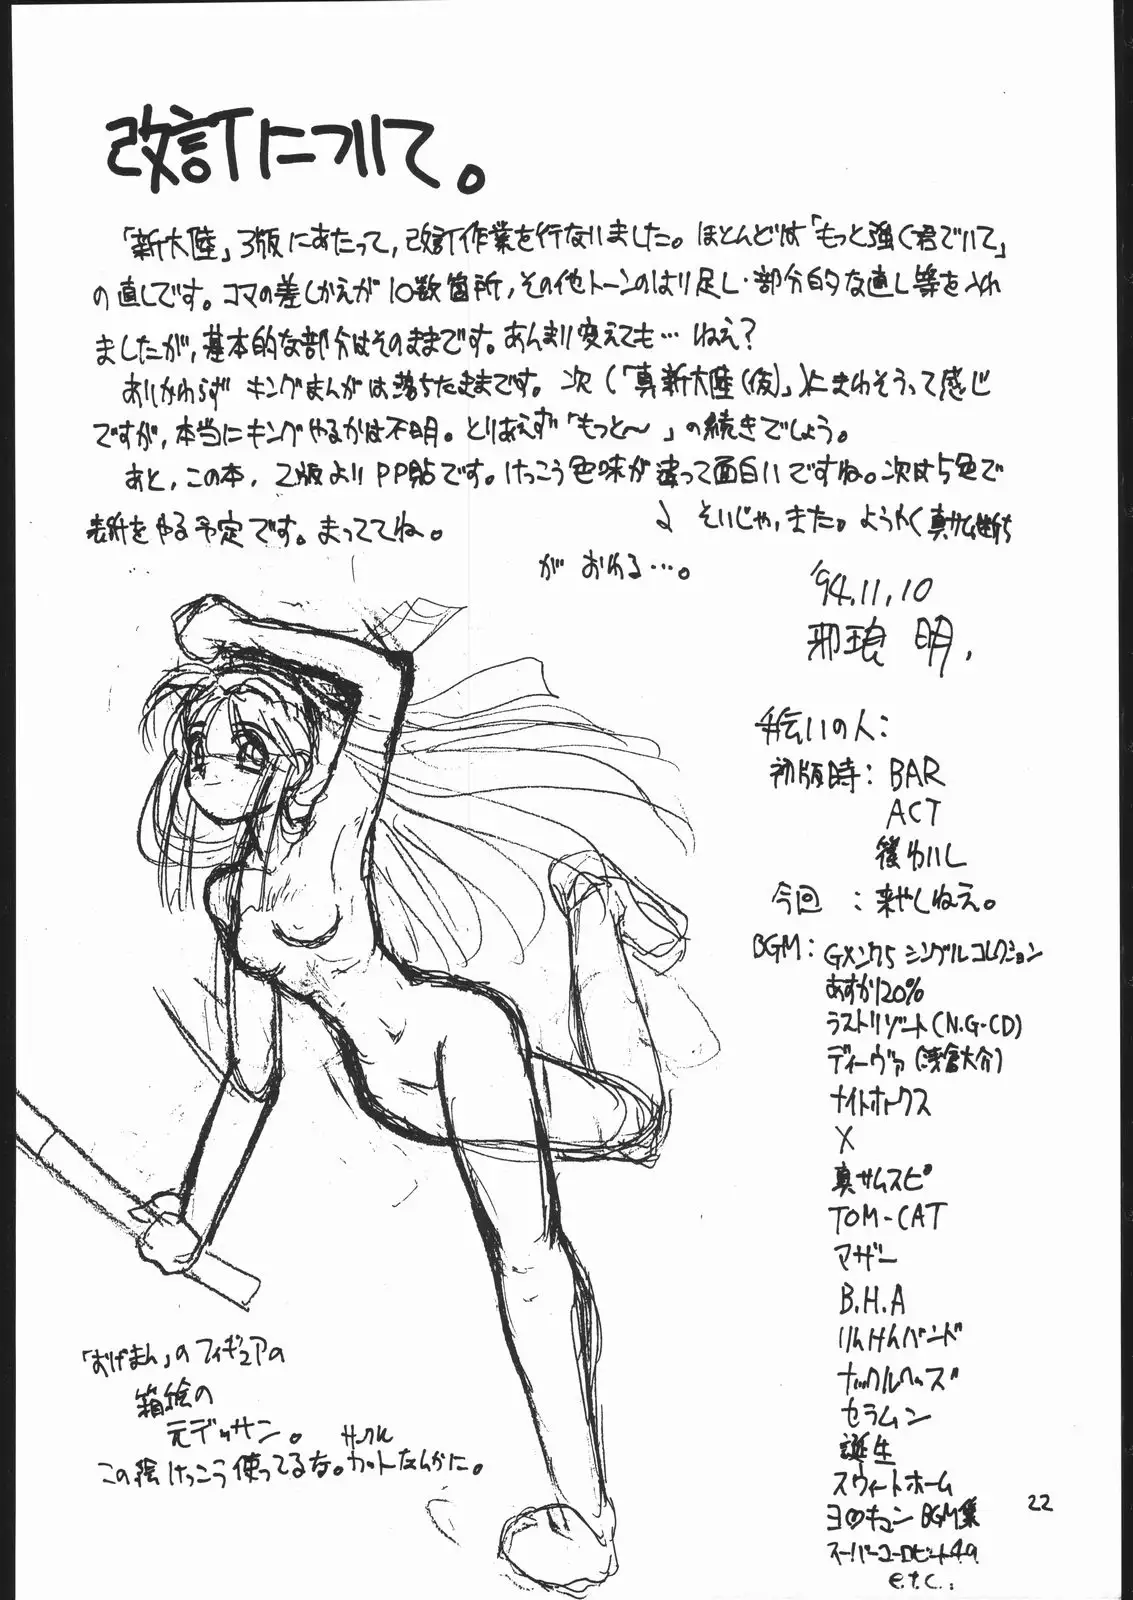 改訂について。
「新大陸」3版にあたって,改訂作業を行ないました。ほとんどは「もっと強く君でいて」
の直しです。コマの差しかえが10数箇所,その他トーンのはり足し・部分的な直し等を入れ
ましたが,基本的な部分はそのままです。あんまり変えても…ねえ?
あいかわらず キングまんがは落ちたままです。次(「真新大陸(仮)」)にまわそうって感じ
ですが,本当にキングやるかは不明。とりあえず「もっと〜」の続きでしょう。
あと,この本,2版よりPP貼です。けっこう色味が違って面白いですね。次は5色で
表紙をやる予定です。まっててね。
そいじゃ,また。ようやく真サム断ち
がおわる…。
'94.11.10
邪琅 明.
手伝いの人:
初版時:BAR
ACT
後わいし
今回 :来やしねえ。
BGM:Gメン75 シングルコレクション
あすか120%
ラストリゾート(N.G-CD)
ディーヴァ(浅倉大介)
ナイトホークス
X
真サムスピ
TOM-CAT
マザー
B.H.A
りんけんバンド
ナックルヘッズ
セラムン
誕生
スウィートホーム
BGM集
etc.
「おげまん」のフィギュアの
箱絵の
元デッサン。
この絵けっこう使ってるな。カットなんかに。
22